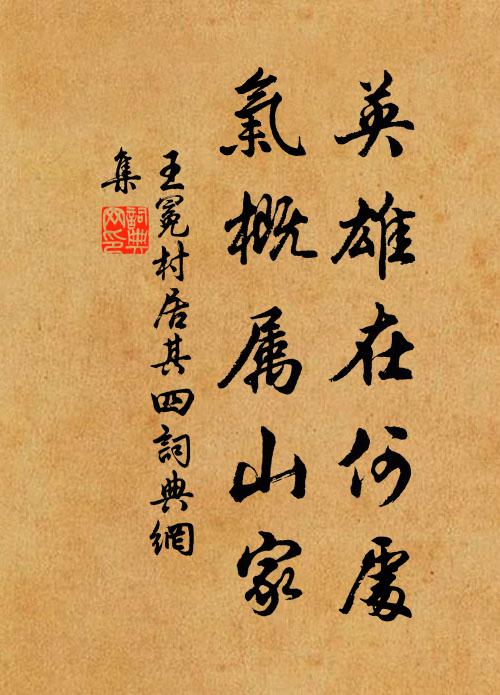 英雄在何處
氣概属山家
王冕村居其四詞典網
集
詞典
网印